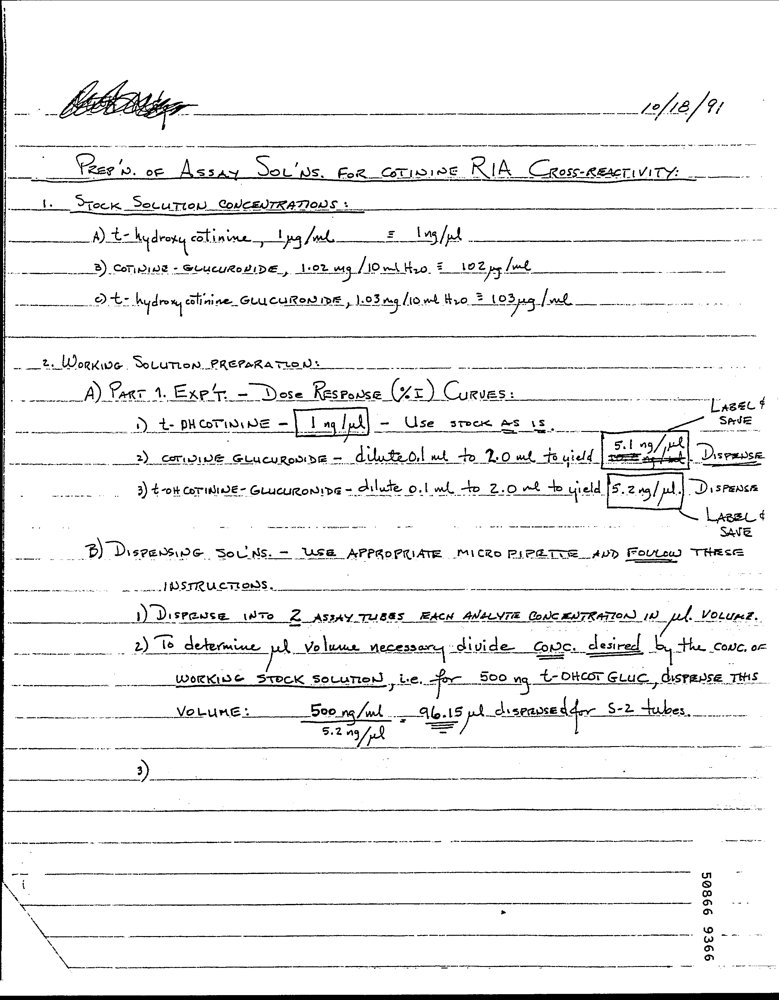 10/18/91
PREP'N. OF ASSAY SOL'NS. FOR COTININE RIA CROSS-REACTIVITY:
1. STOCK SOLUTION CONCENTRATIONS:
A) t-hydroxycotinine, 1µg/ml ≡ 1ng/µl
B) COTININE-GLUCURONIDE, 1.02 mg/10 ml H2O ≡ 102µg/ml
C) t-hydroxycotinine GLUCURONIDE, 1.03mg/10 ml H2O ≡ 103µg/ml
2. WORKING SOLUTION PREPARATION:
A) PART 1. EXP'T. - DOSE RESPONSE (%I) CURVES:
LABEL &
SAVE
1) t-OHCOTININE - 1 ng/µl - USE STOCK AS IS.
2) COTININE GLUCURONIDE - dilute 0.1 ml to 2.0 ml to yield 5.1 ng/µl. DISPENSE
3) t-OHCOTININE-GLUCURONIDE - dilute 0.1 ml to 2.0 ml to yield 5.2 ng/µl. DISPENSE
LABEL &
SAVE
B) DISPENSING SOL'NS. - USE APPROPRIATE MICROPIPETTE AND FOLLOW THESE
INSTRUCTIONS.
1) DISPENSE INTO 2 ASSAY TUBES EACH ANALYTE CONCENTRATION IN µl. VOLUME.
2) To determine µl volume necessary divide CONC. desired by the CONC. OF
WORKING STOCK SOLUTION, i.e. for 500 ng t-OHCOT GLUC, DISPENSE THIS
VOLUME: 500 ng/ml = 96.15 µl dispensed for S-2 tubes.
5.2 ng/µl
3)
50866 9366